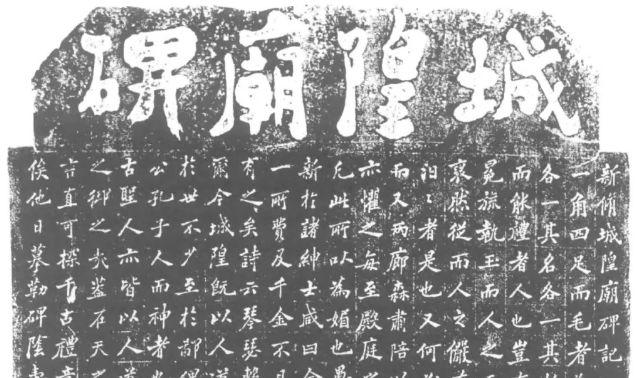 城隍廟碑
新脩城隍廟碑記
一角四足而毛者
各一其名各一其
而能禮者人也豈
冕旒執玉而人之
哀然從而人之儼
汩々者是也又何
而又兩廊森肅陪
亦懼之每至殿庭
凡此所以為媚也
新於諸紳士咸曰
一所費及千金不
有之矣詩云琴瑟
爾今城隍既以人
於世不少至於鄒
公孔子人而神者
古聖人亦皆以人
之鄉之 蓋在天
言直可探千古禮
俟他日摹勒碑陰